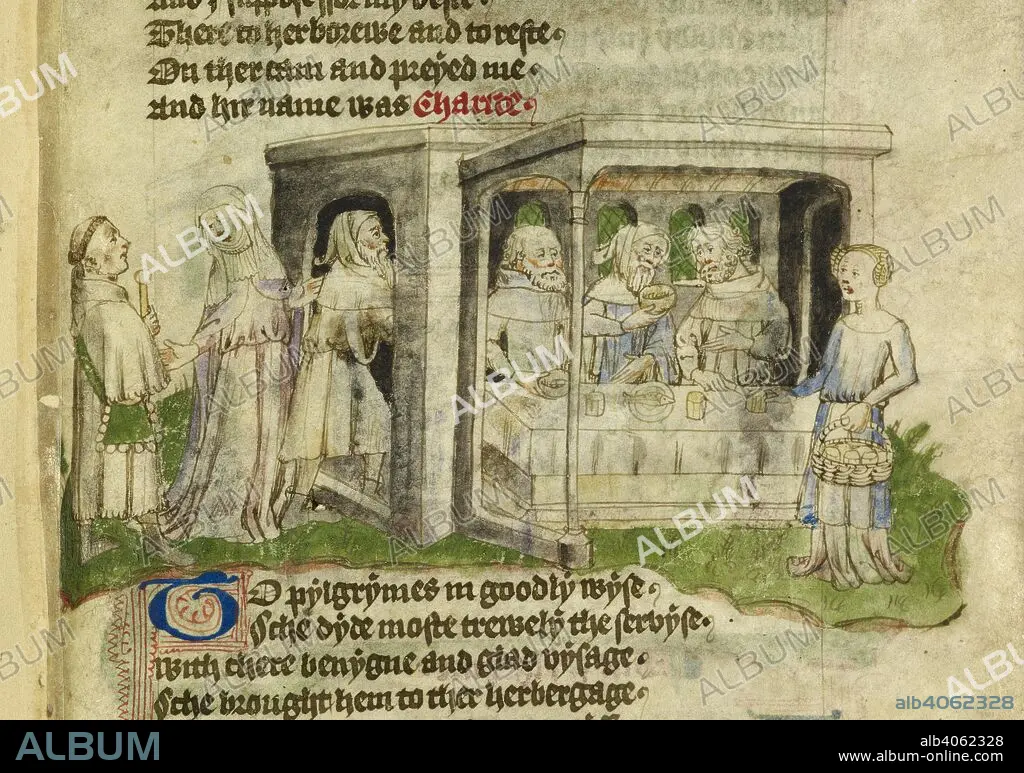 and I suppose for my beste
There to herborewe and to reste
On ther cam and preyed me
and hir name was Charite
TO pylgrymes in goodly wyse
Sche dyde moste trewely the servyse
With chere benygne and glad vysage
Sche brought hem to ther herbergage
ALBUM
alb4062328
ALBUM
alb4062328
www.album-online.com